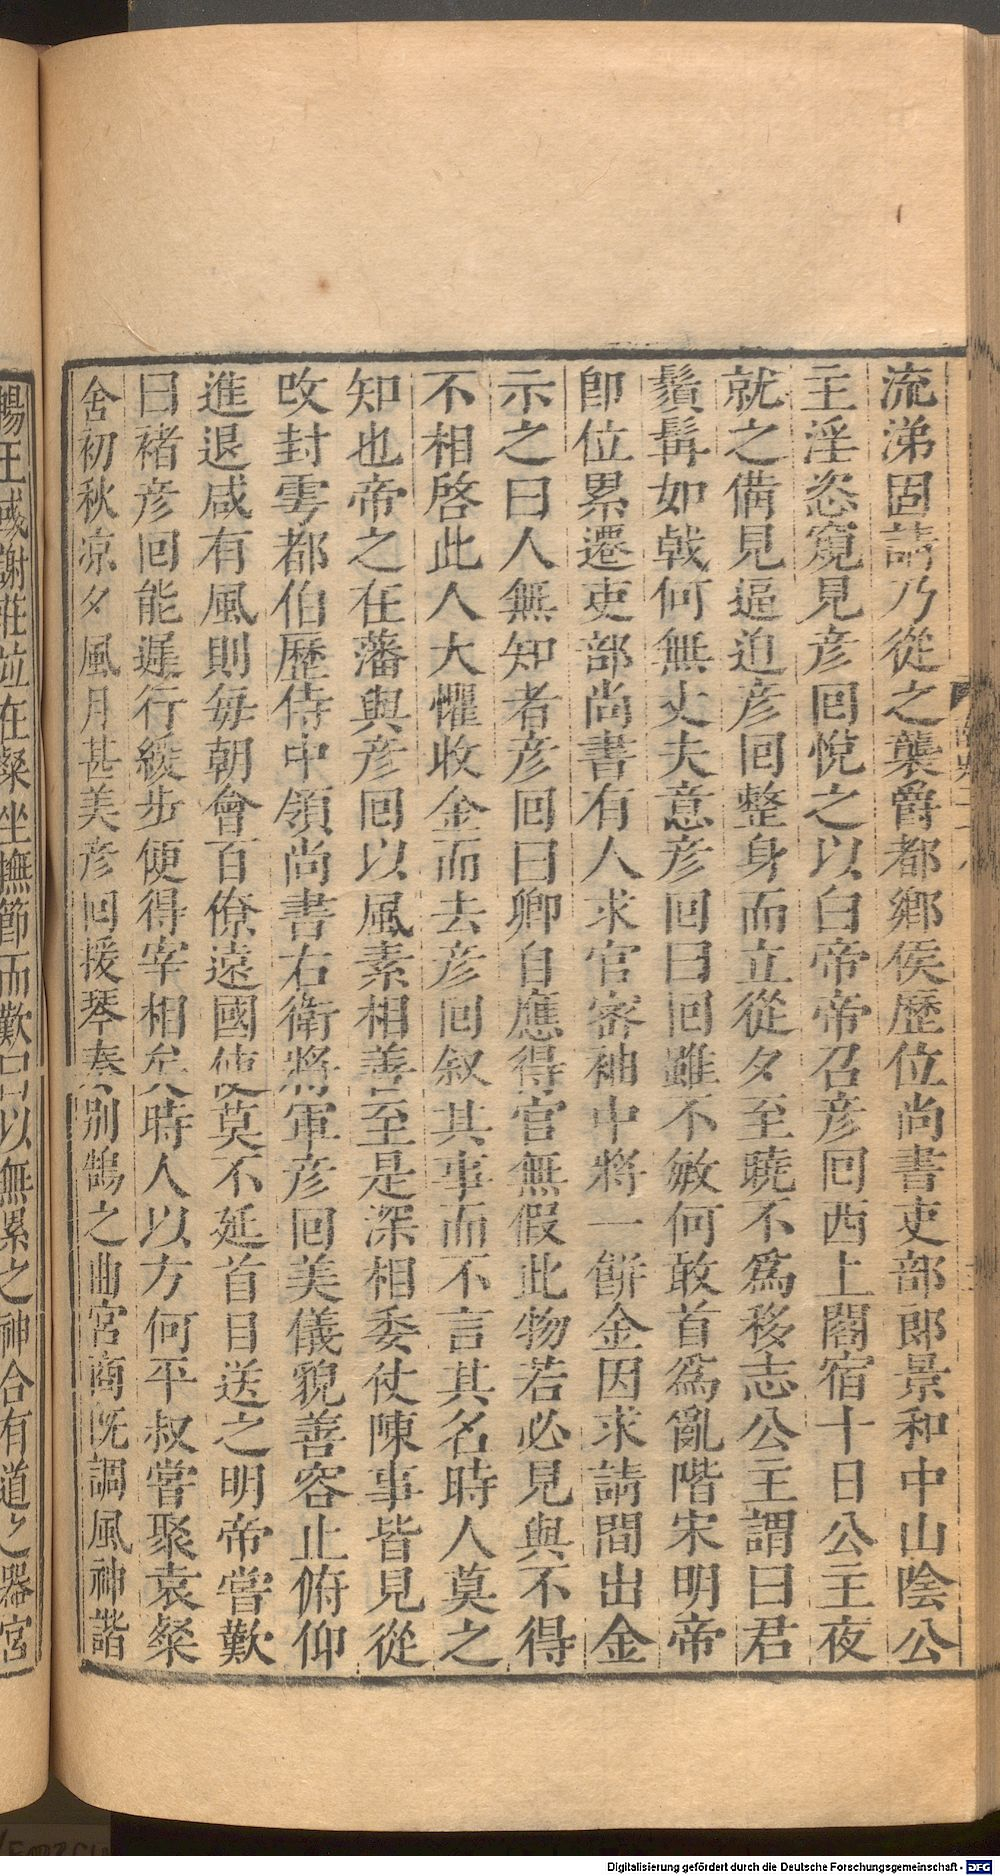 流涕固請乃從之襲爵都鄉侯歷位尚書吏部郎景和中山陰公
主淫恣窺見彥回悅之以白帝帝召彥回西上閣宿十日公主夜
就之備見逼迫彥回整身而立從夕至曉不為移志公主謂曰君
鬚髯如戟何無丈夫意彥回曰回雖不敏何敢首為亂階宋明帝
卽位累遷吏部尚書有人求官密袖中將一餅金因求請間出金
示之曰人無知者彥回曰卿自應得官無假此物若必見與不得
不相啓此人大懼收金而去彥回叙其事而不言其名時人莫之
知也帝之在藩與彥回以風素相善至是深相委仗陳事皆見從
改封雩都伯歷侍中領尚書右衛將軍彥回美儀貌善容止俯仰
進退咸有風則每朝會百僚遠國使莫不延首目送之明帝嘗歎
曰褚彥回能遲行緩步便得宰相矣時人以方何平叔嘗聚袁粲
舍初秋凉夕風月甚美彥回援琴奏別鵠之曲宮商旣調風神諧
暢王彧謝莊並在粲坐撫節而歎曰以無累之神合有道之器宮
Digitalisierung gefördert durch die Deutsche Forschungsgemeinschaft - DFG